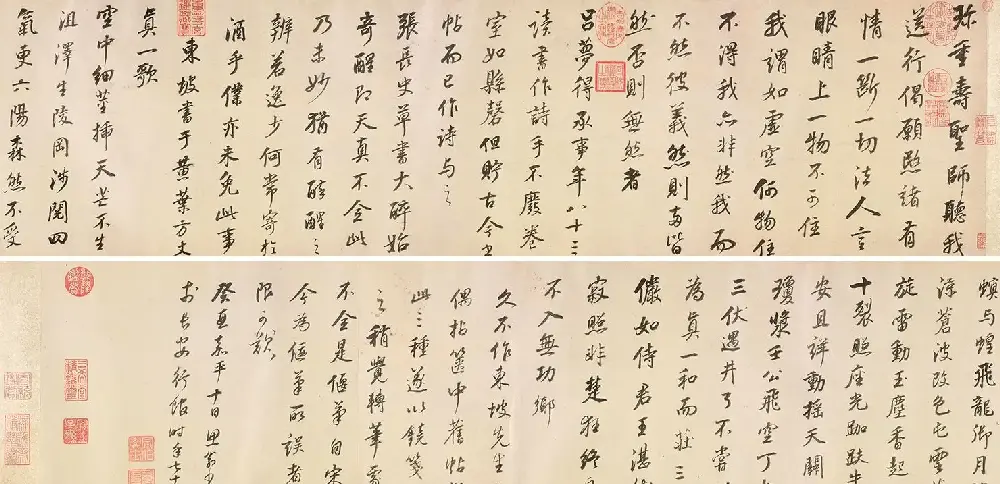 弥重壽聖師聽我
送行偈願愍諸有
情一断一切法人言
眼睛上一物不可住
我謂如虚空何物住
不得我亦非然我而
不然彼義然則两皆
然否則無然者
吕夢得承事年八十三
讀書作詩手不廢卷
室如縣罄但貯古今书
帖而已作诗与之
張長史草書大醉始
奇醒即天真不全此
乃未妙猶有醉醒之
辨若逸少何常寄於
酒乎僕亦未免此事
東坡書于黄葉方丈
真一歌
空中細莖插天芒不生
沮澤生陵岡涉閱四
氣更六陽森然不受
螟与蝗飛龍御月
深蒼波改色屯雲
旋雷動玉塵香起
十裂照座光跏趺牛
安且詳動搖天關
瓊漿壬公飛空丁
三伏遇井了不嘗
為真一和而莊三
儼如侍君王湛
寂照非楚狂終
不入無功鄉
久不作東坡先生
偶拈篋中舊帖
此三種遂以鏡箋
之稍覺轉筆
不全是偃筆自宋
今為偃筆所誤者
限可歎
癸亥嘉平十日思翁
於長安行館時年七十